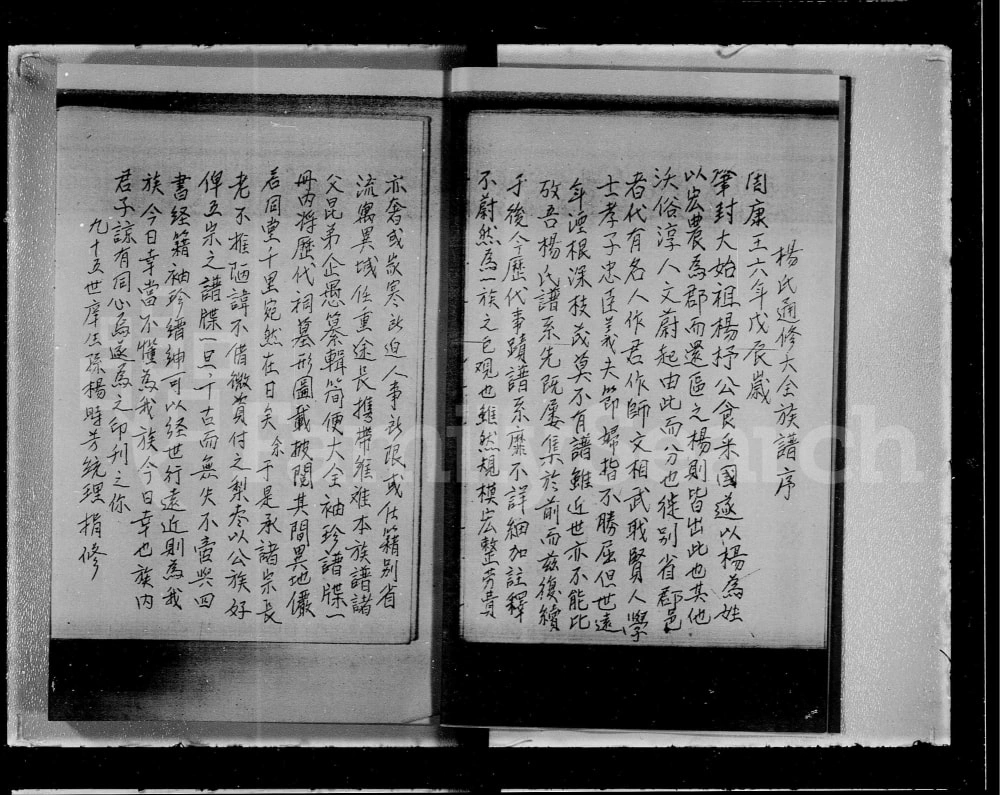 楊氏通修大全族譜序
周康王六年戊辰歲
肇封大始祖楊抒公食采國遂以楊為姓
以宏農為郡而還區之楊則皆出此也其他
沃俗淳人文蔚起由此而分也徙別省郡邑
者代有名人作君作師文相武戰賢人學
士孝子忠臣義夫節婦指不勝屈但世遠
年湮根深枝茂莫不有譜雖近世亦不能比
攷吾楊氏譜系先既屢集於前而茲復續
于後今歷代事蹟譜系靡不詳細加註釋
不蔚然為族之巨观也雖然規模宏整芳貴
亦奢或歲寒所迫人事所限或仕籍别省
流寓異域任重途長攜帶維难本族譜諸
父昆弟企愚纂輯简便大全袖珍譜牒一
冊内将歷代祠墓形圖載披閱其間異地儼
若同堂千里宛然在目矣余于是承諸宗長
老不推陋諱不借微資付之梨枣以公族好
俾五宗之譜牒一旦千古而無失不啻與四
書経籍袖珍縉紳可以経世行遠近則為我
族今日幸當不惟為我族今日幸也族内
君子諒有同心焉遂為之印刊之你
九十五世庠生孫楊時芳統理捐修
FamilySearch